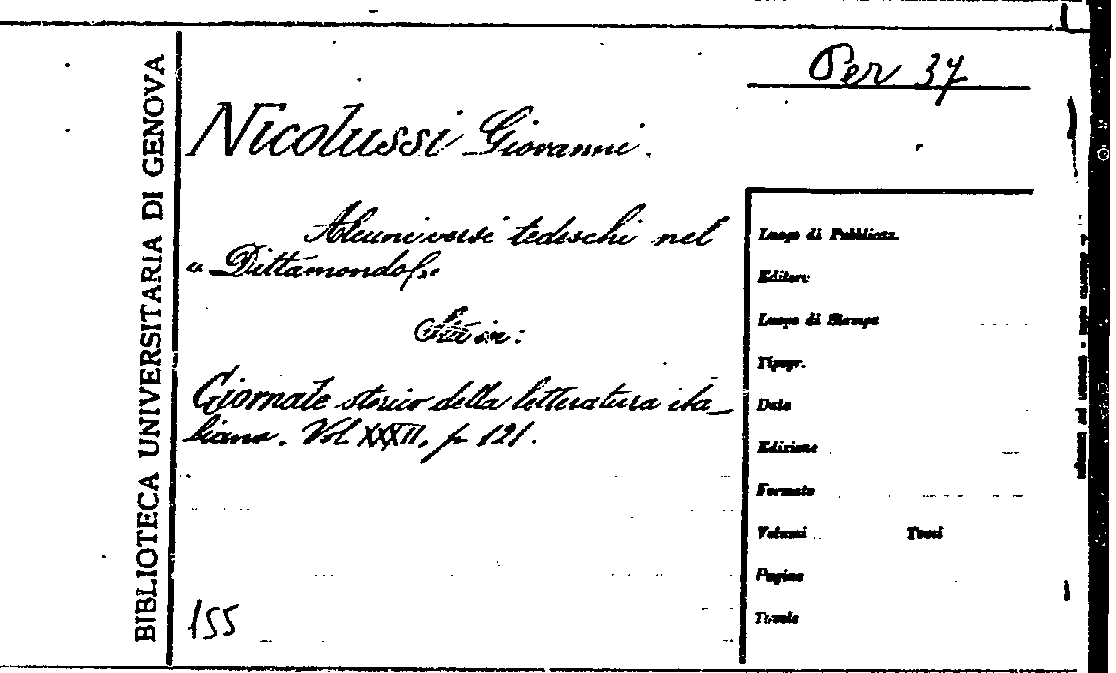 BIBLIOTECA UNIVERSITARIA DI GENOVA
Per 37
Nicolussi Giovanni.
Alcuni versi tedeschi nel
« Dittamondo ».
Sta in:
Giornale storico della letteratura ita_
liana. Vol XXXII, p 121.
155
Luogo di Pubblicaz.
Editore
Luogo di Stampa
Tipogr.
Data
Edizione
Formato
Volumi Tomi
Pagine
Tavole